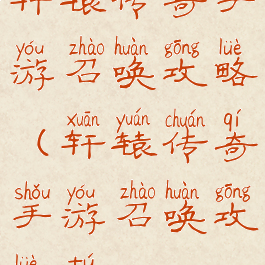 轩辕传奇手
yóu zhào huàn gōng lüè
游召唤攻略
xuān yuán chuán qí
（轩辕传奇
shǒu yóu zhào huàn gōng
手游召唤攻
lüè tú